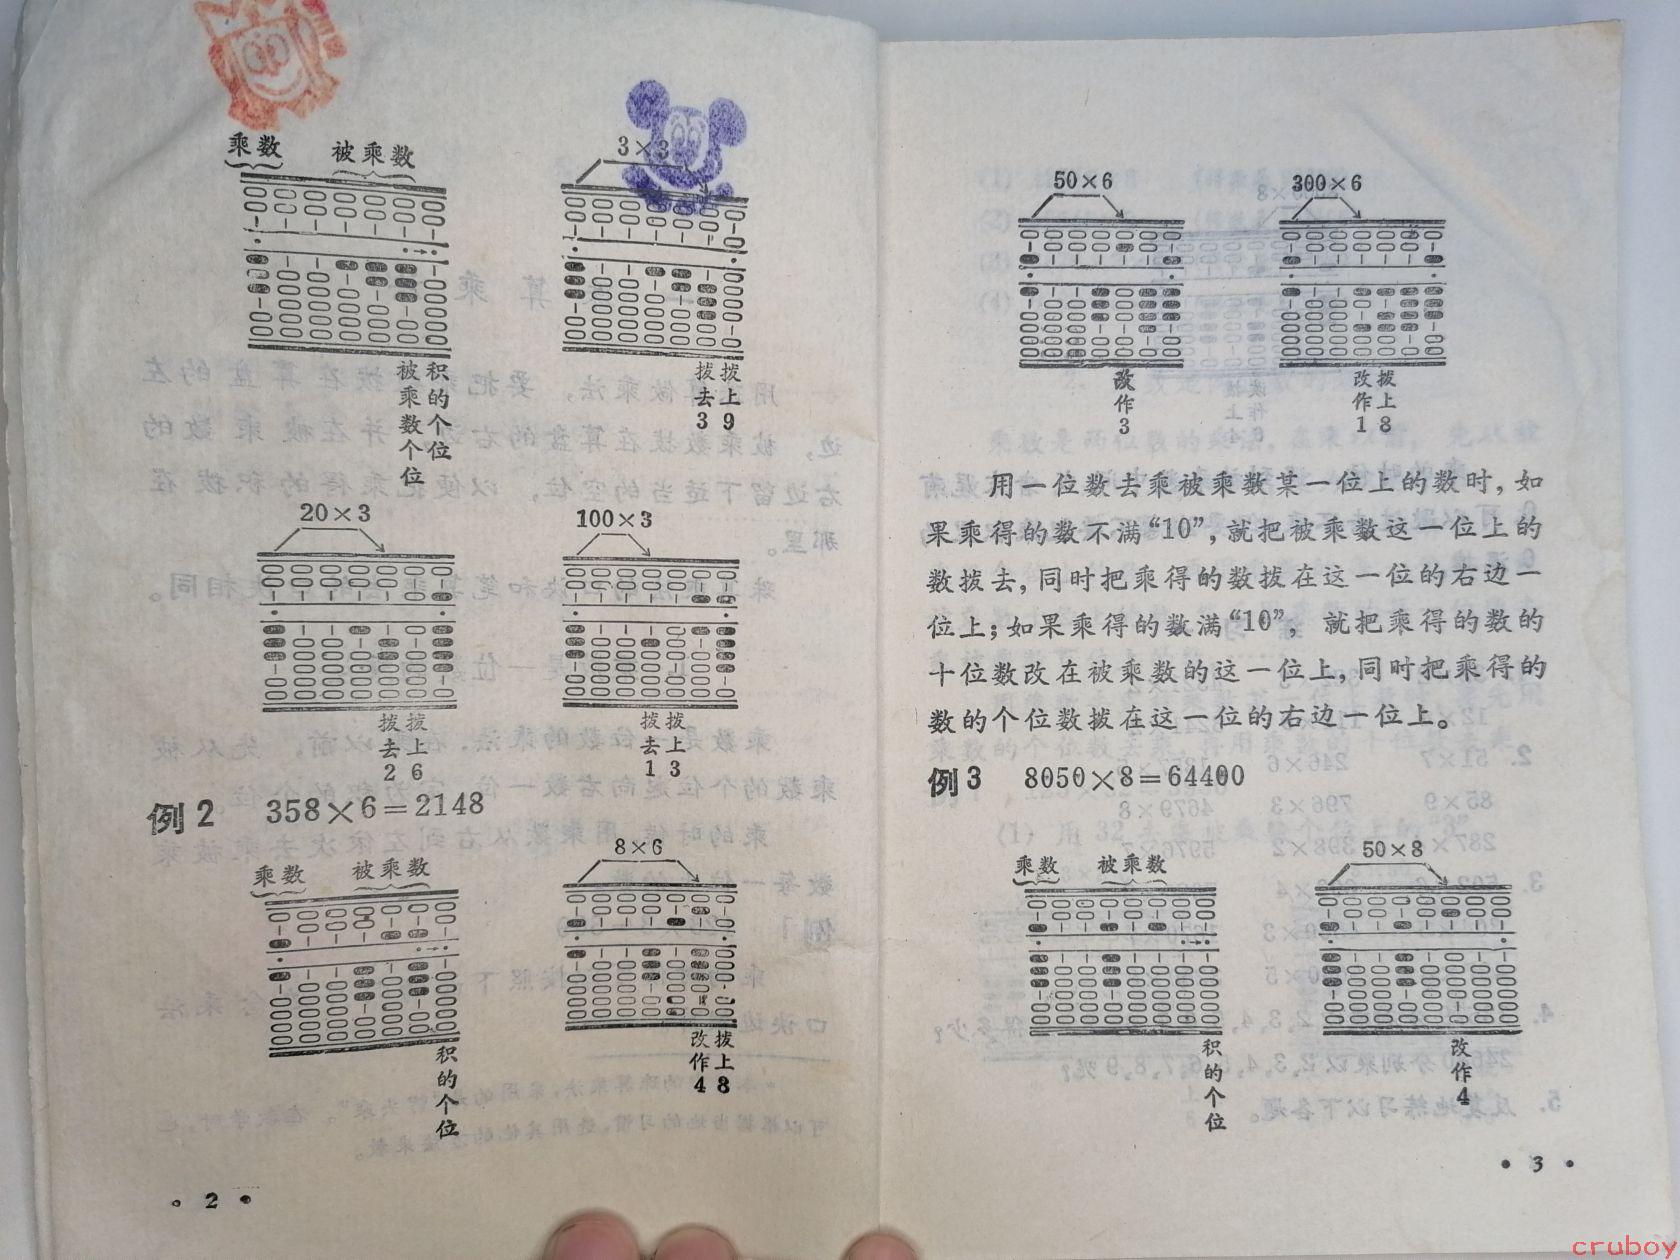 乘数 被乘数
3×3
被乘数个位 积的个位
拨去3 拨上9
20×3
100×3
拨去2 拨上6
拨去1 拨上3
例2 358×6=2148
乘数 被乘数
8×6
积的个位
改作4 拨上8
• 2 •
50×6
300×6
改作3
改作1 拨上8
用一位数去乘被乘数某一位上的数时,如
果乘得的数不满“10”,就把被乘数这一位上的
数拨去,同时把乘得的数拨在这一位的右边一
位上;如果乘得的数满“10”, 就把乘得的数的
十位数改在被乘数的这一位上,同时把乘得的
数的个位数拨在这一位的右边一位上。
例3 8050×8=64400
乘数 被乘数
50×8
积的个位
改作4
• 3 •
cruboy